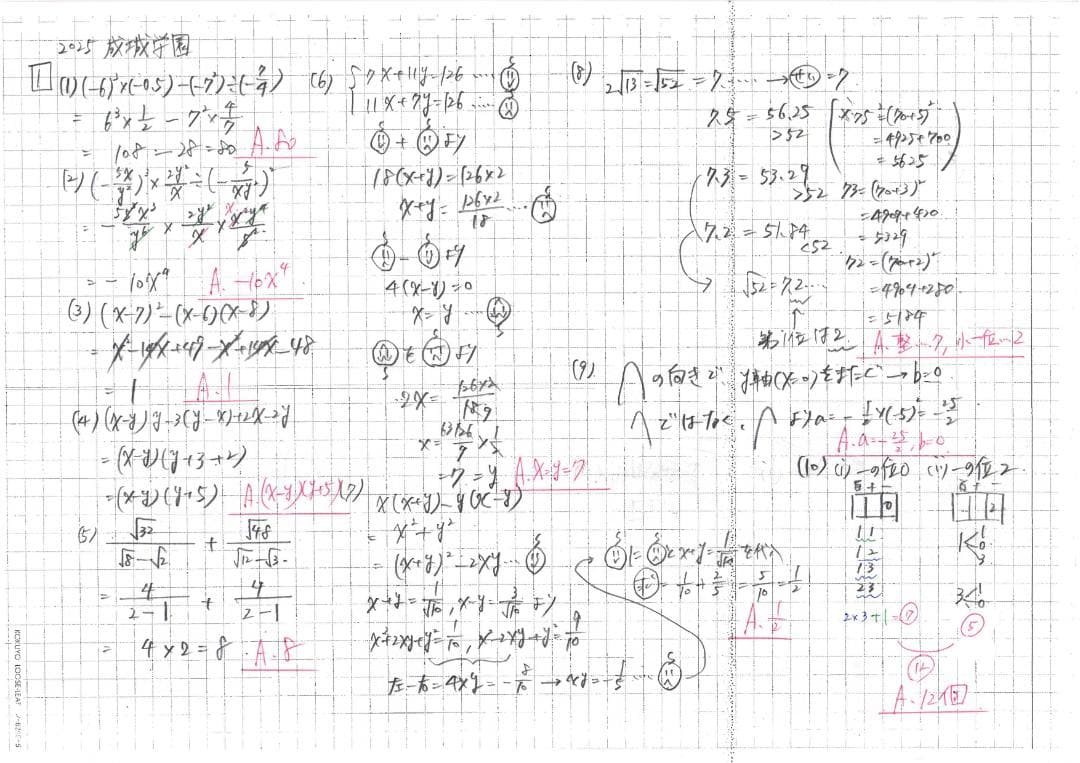 2025 成城学園
1
(1) (-6)³×(-0.5)-(-7²)÷(-7/4)
= 6³×1/2 - 7²×4/7
= 108-28=80 A.80
(2) (-5x/y²)³×2y²/x÷(-5/xy²)²
= -5³x³/y⁶ × 2y²/x × x²y⁴/5²
= -10x⁴ A. -10x⁴
(3) (x-7)²-(x-6)(x-8)
= x²-14x+49-x²+14x-48
= 1 A.1
(4) (x-y)y-3(y-x)+2x-2y
= (x-y)(y+3+2)
= (x-y)(y+5) A.(x-y)(y+5)
(5) √32/(√8-√2) + √48/(√12-√3)
= 4/(2-1) + 4/(2-1)
= 4×2=8 A.8
(6) { 7x+11y=126 …
11x+7y=126 …
+ より
18(x+y)=126×2
x+y=126×2/18 …
- より
4(x-y)=0
x=y …
を より
2x=126×2/18 9
x=63 126/9×1/2
=7=y A.x=y=7
(7) x(x+y)-y(x-y)
= x²+y²
= (x+y)²-2xy …
x+y=1/√10, x-y=3/√10 より
x²+2xy+y²=1/10, x²-2xy+y²=9/10
左-右=4xy=-8/10 → xy=-1/5 …
に と x+y=1/√10 を代入
=1/10+2/5=5/10=1/2
A.1/2
(8) 2√13=√52=7.…… → =7
7.5=56.25
>52
(※75²=(70+5)²
=4925+700
=5625)
7.3=53.29
>52
73=(70+3)²
=4909+420
=5329
7.2=51.84
<52
72=(70+2)²
=4904+280
=5184
√52=7.2…
第1位は2 A.整…7, 小一位…2
(9) の向きで y軸(x=0)をまたぐ→b=0
ではなく、 よりa=-1/2×(-5)²=-25/2
A.a=-25/2, b=0
(10) (i) 一の位0 (ii) 一の位2
百十一 百十一
0 2
11
12
13
23
1 1 0 3
3 1 0
2×3+1=7 5
12
A.12個
KOKUYO LOOSE-LEAF